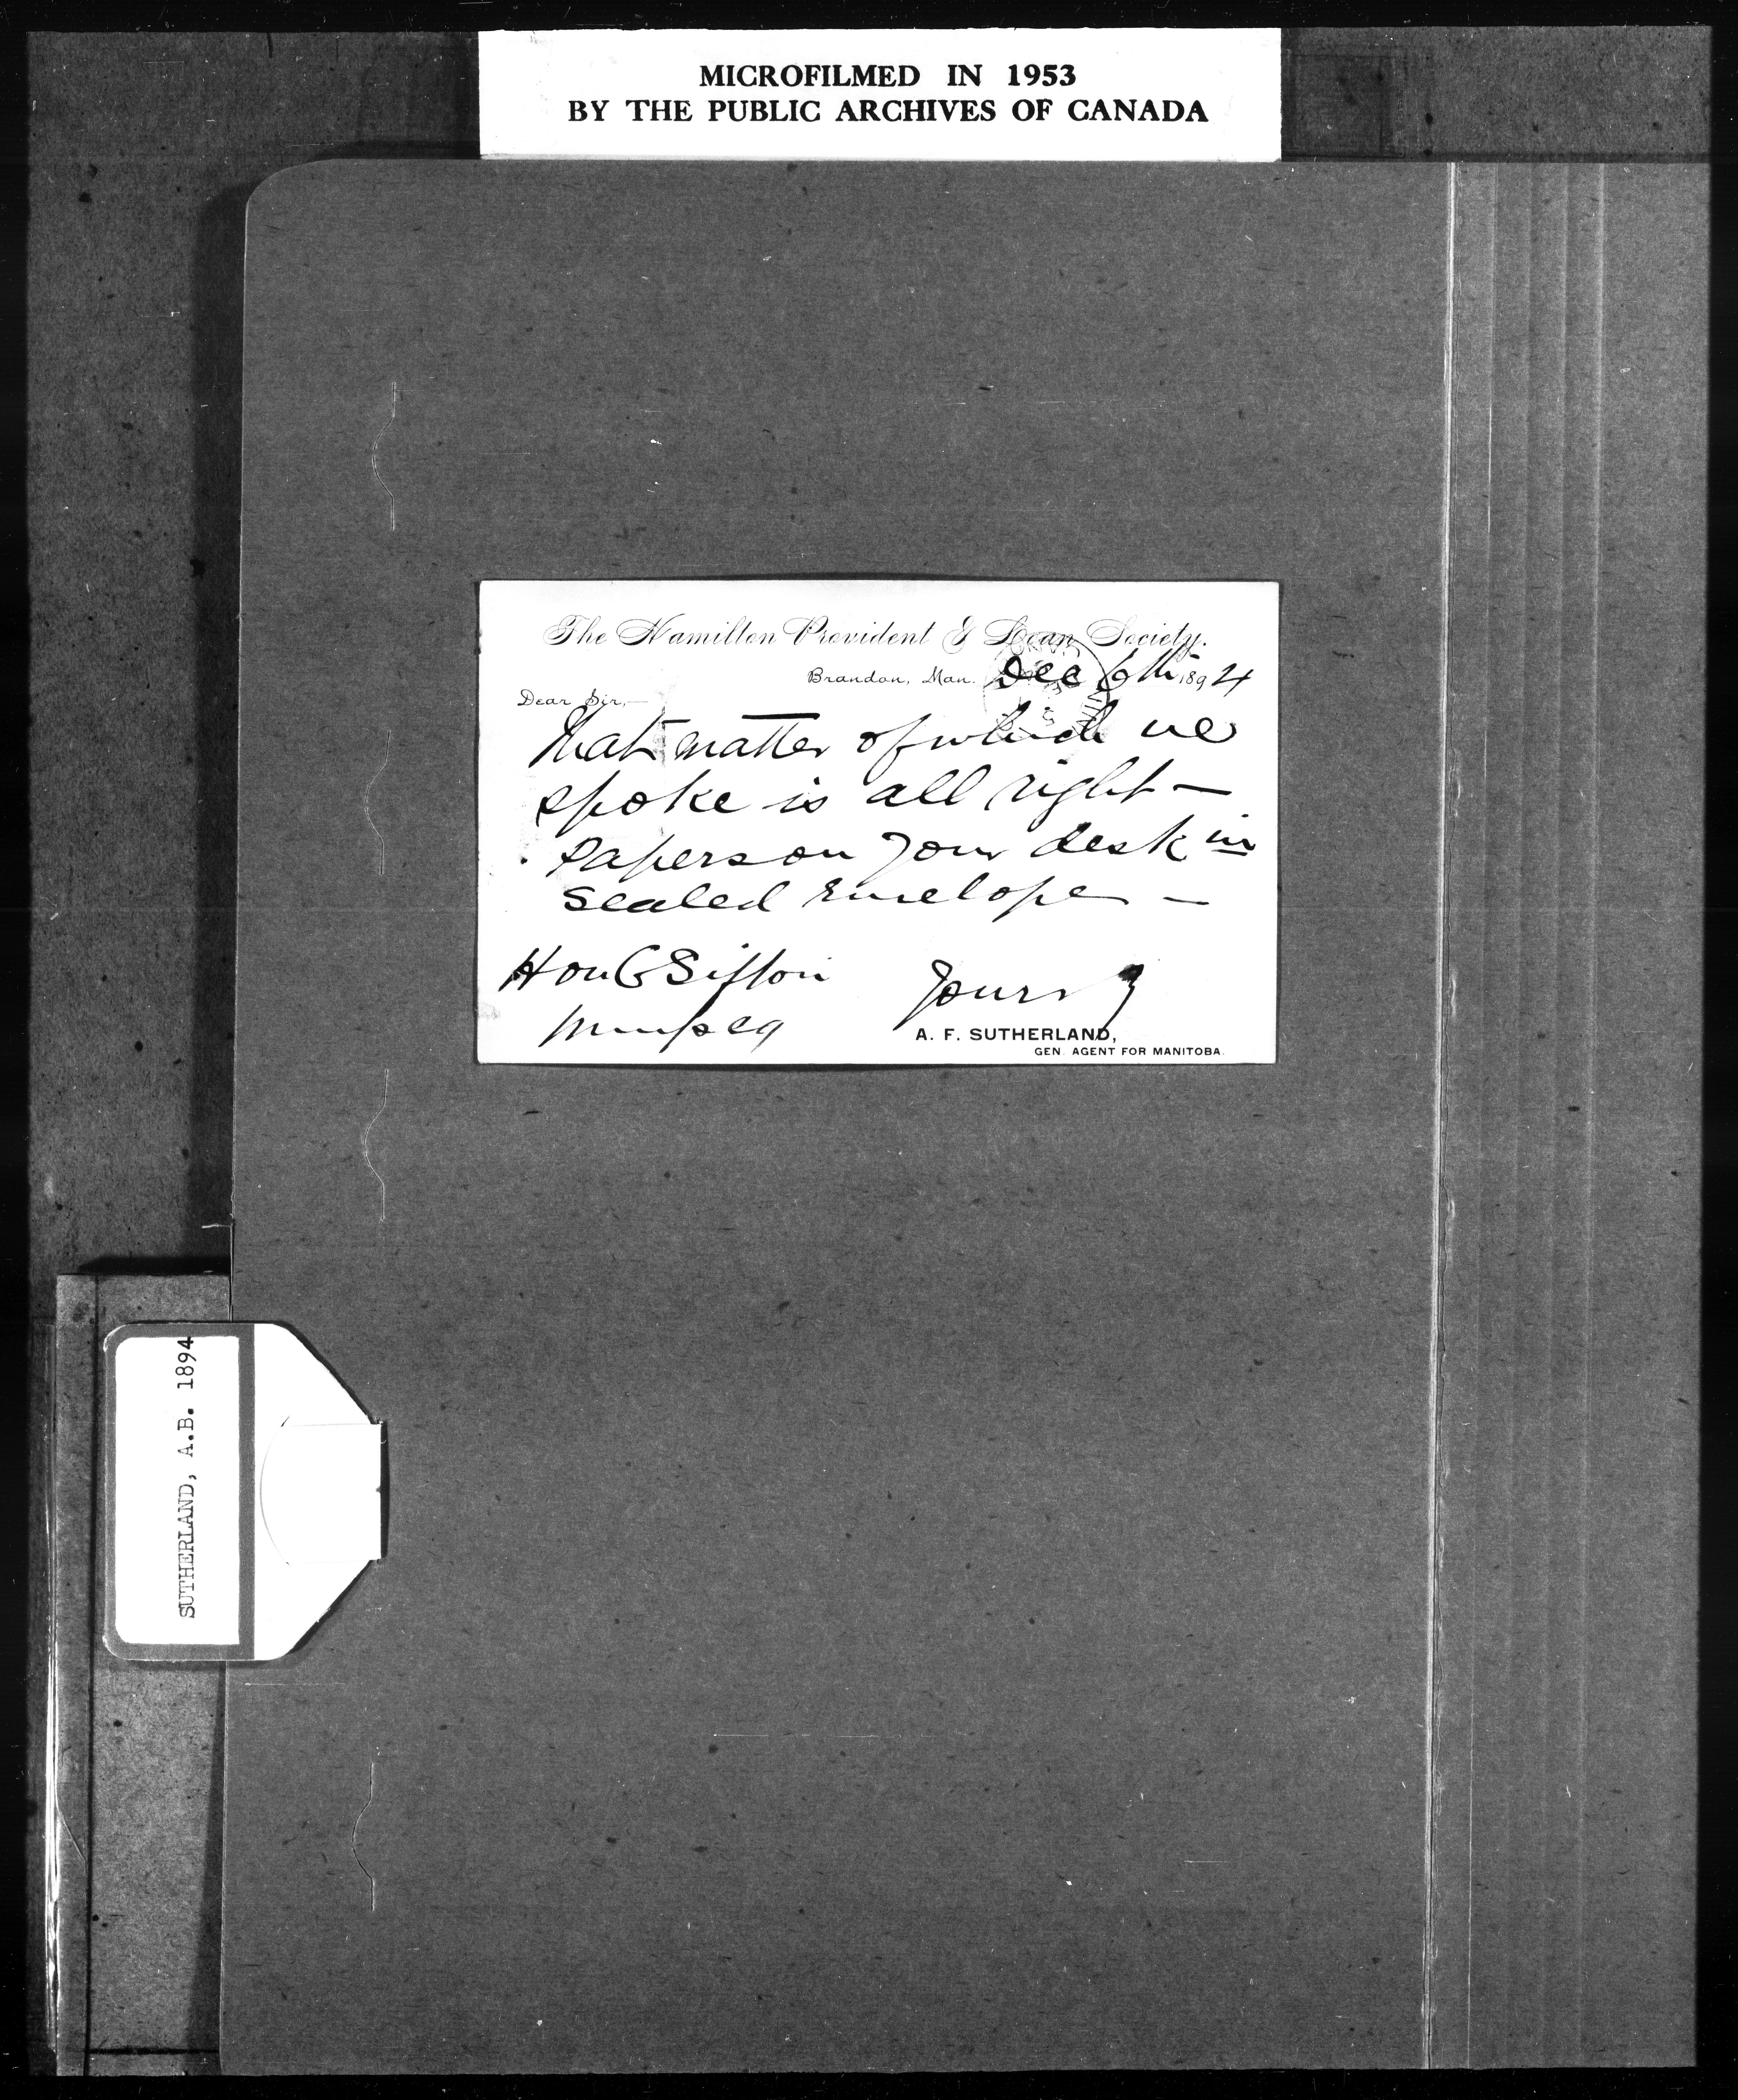 MICROFILMED IN 1953
BY THE PUBLIC ARCHIVES OF CANADA
The Hamilton Provident & Loan Society.
Brandon, Man. Dec 6th 1894
Dear Sir,—
That matter of which we
spoke is all right —
papers on your desk in
sealed envelope —
Hon C Sifton
Winnipeg
Yours
A. F. SUTHERLAND,
GEN. AGENT FOR MANITOBA.
SUTHERLAND, A.B. 1894